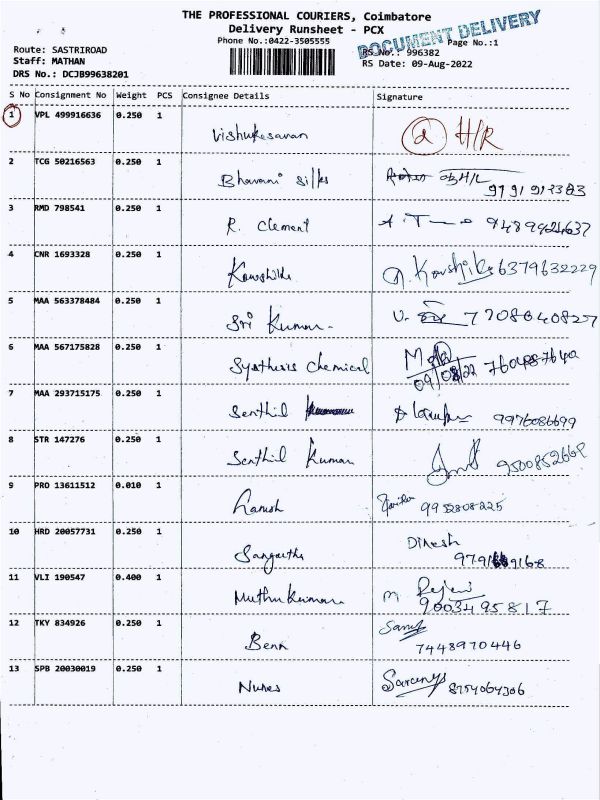 THE PROFESSIONAL COURIERS, Coimbatore
Delivery Runsheet - PCX
Phone No.:0422-3505555
Page No.:1
DOCUMENT DELIVERY
Route: SASTRIROAD
RS No.: 996382
Staff: MATHAN
RS Date: 09-Aug-2022
DRS No.: DCJB99638201
S No Consignment No Weight PCS Consignee Details Signature
1 VPL 499916636 0.250 1
Vishukesavan H/R
2 TCG 50216563 0.250 1
Bhavani Silks
9191912383
3 RMD 798541 0.250 1
R. Clement
4 CNR 1693328 0.250 1
Kowshika Kowshika 6379632229
5 MAA 563378484 0.250 1
Sri Kumar 7708640827
6 MAA 567175828 0.250 1
Systhesis Chemical
09/08/22
7 MAA 293715175 0.250 1
Senthil 9976086699
8 STR 147276 0.250 1
Senthil Kumar
9 PRO 13611512 0.010 1
9952808225
10 HRD 20057731 0.250 1
Dinesh
Sangeetha
11 VLI 190547 0.400 1
Muthukumar
9003495817
12 TKY 834926 0.250 1
Benn
7448970446
13 SPB 20030019 0.250 1
Nunes Saranya 8754064306